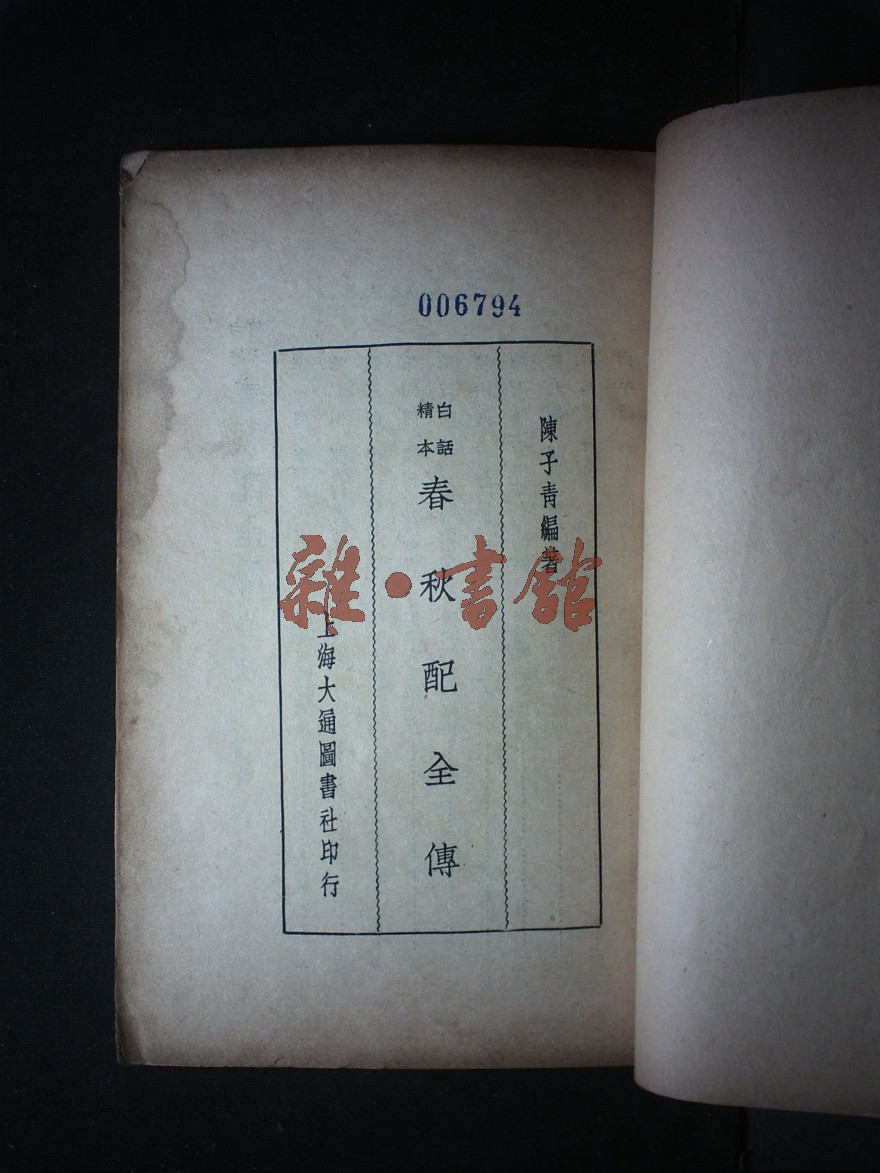 006794
陳子靑編著
白話
精本
春秋配全傳
上海大通圖書社印行
雜·書館